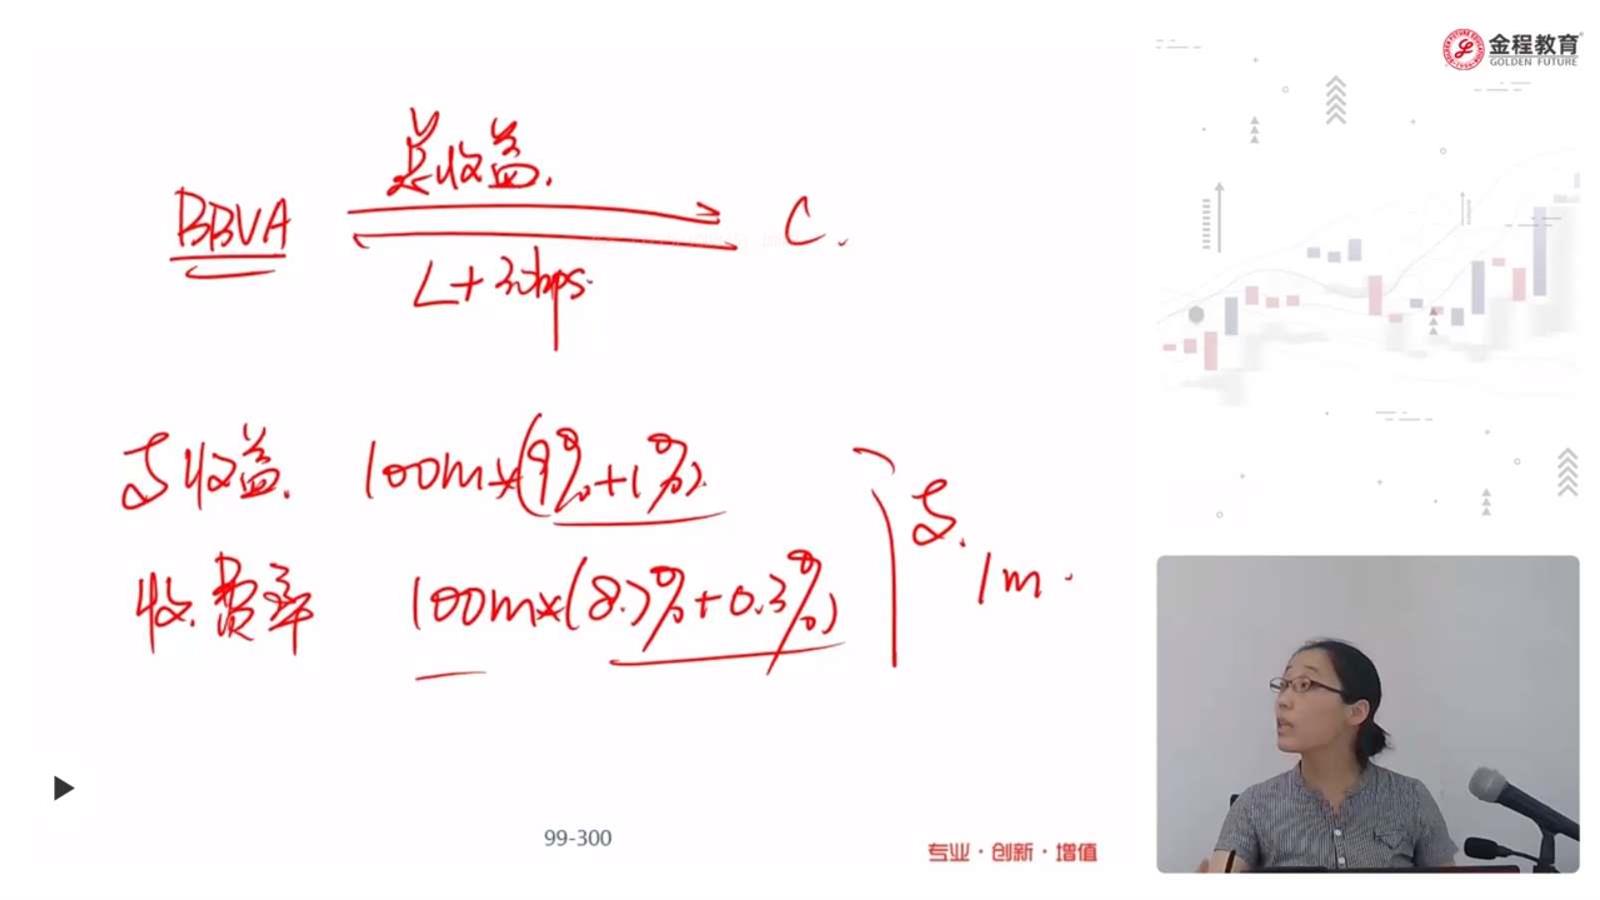 金程教育
GOLDEN FUTURE
总收益.
BBVA
C.
L+30bps.
支收益. 100m×(9%+1%).
收.费率 100m×(8.7%+0.3%)
支.
1m.
99-300
专业·创新·增值